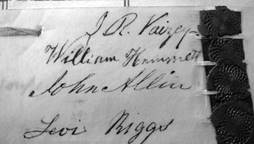 J. R. Vaizey
William Hempsell
John Allin
Levi Riggs